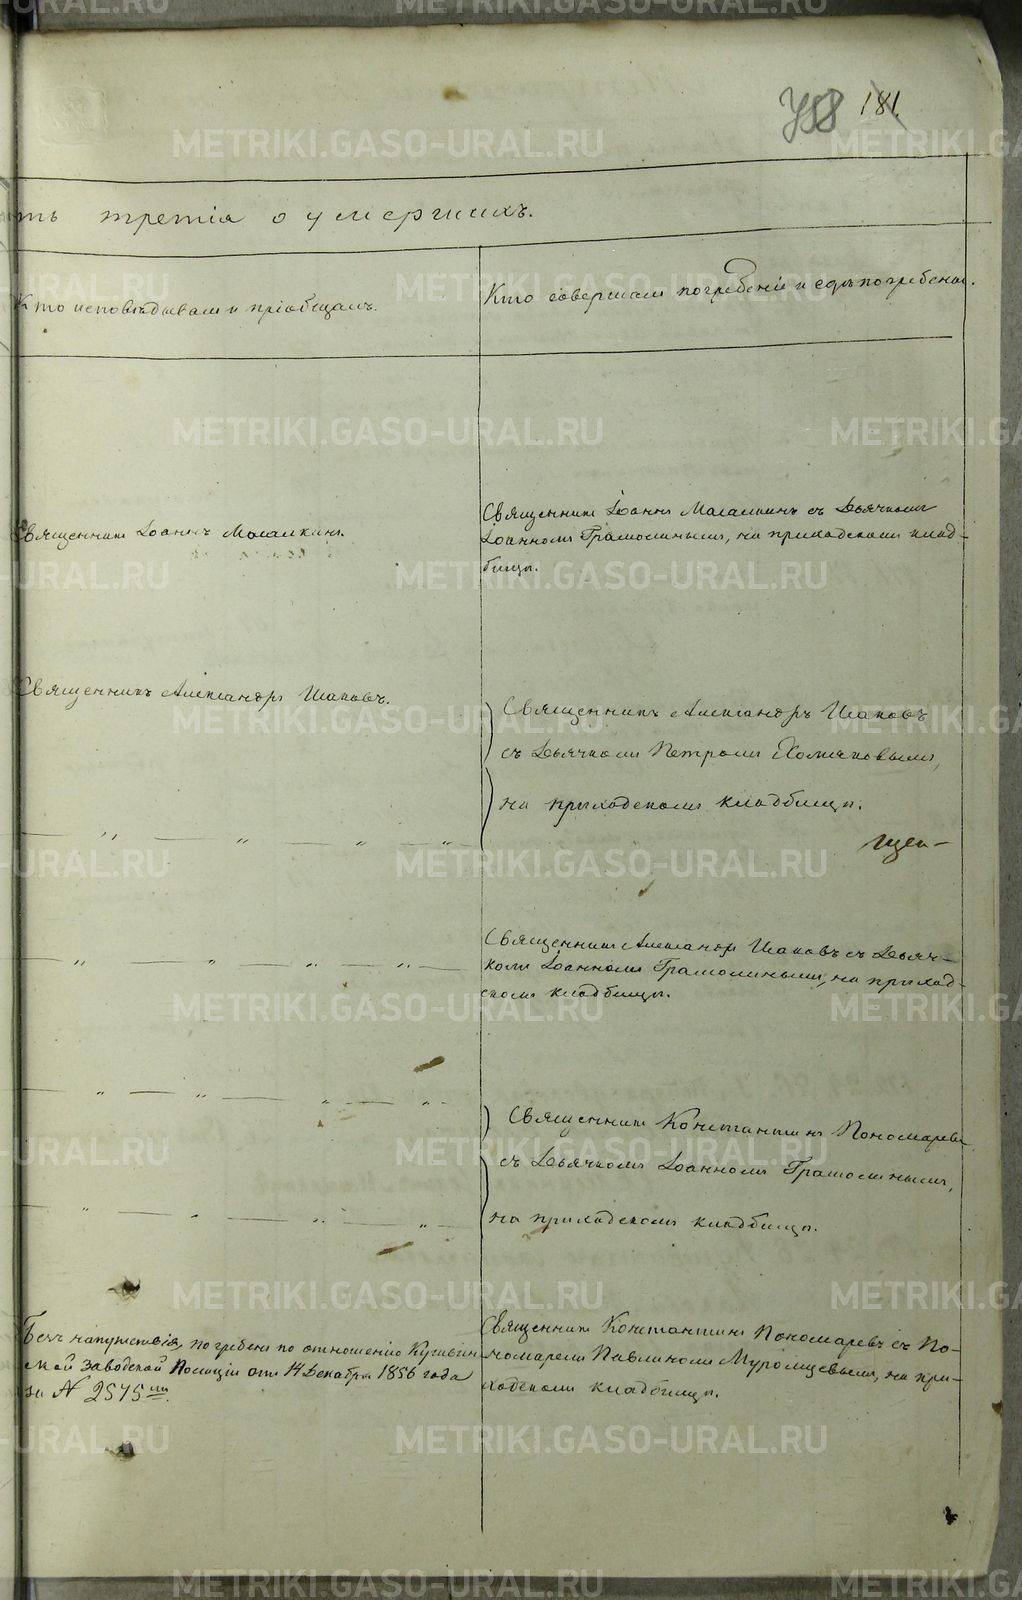 758 181.
ть третія о умершихъ.
Кто исповѣдывалъ и пріобщалъ.
Кто совершалъ погребеніе и гдѣ погребены.
Священникъ Іоаннъ
Священникъ Іоаннъ съ Дьячкомъ
Іоанномъ Грамолинымъ, на приходскомъ клад-
бищѣ.
Священникъ Александръ Шаповъ.
Священникъ Александръ Шаповъ
съ Дьячкомъ Петромъ Хомяковымъ,
на приходскомъ кладбищѣ.
Священникъ Александръ Шаповъ съ Дьяч-
комъ Іоанномъ Грамолинымъ, на приход-
скомъ кладбищѣ.
Священникъ Константинъ Пономаревъ
съ Дьячкомъ Іоанномъ Грамолинымъ,
на приходскомъ кладбищѣ.
Безъ напутствія, погребенъ по отношенію Кушвин
ской Заводской Полиціи отъ 14 Декабря 1856 года
за № 2575мъ.
Священникъ Константинъ Пономаревъ съ По-
номаремъ Павлиномъ Муромцевымъ, на при-
ходскомъ кладбищѣ.
METRIKI.GASO-URAL.RU